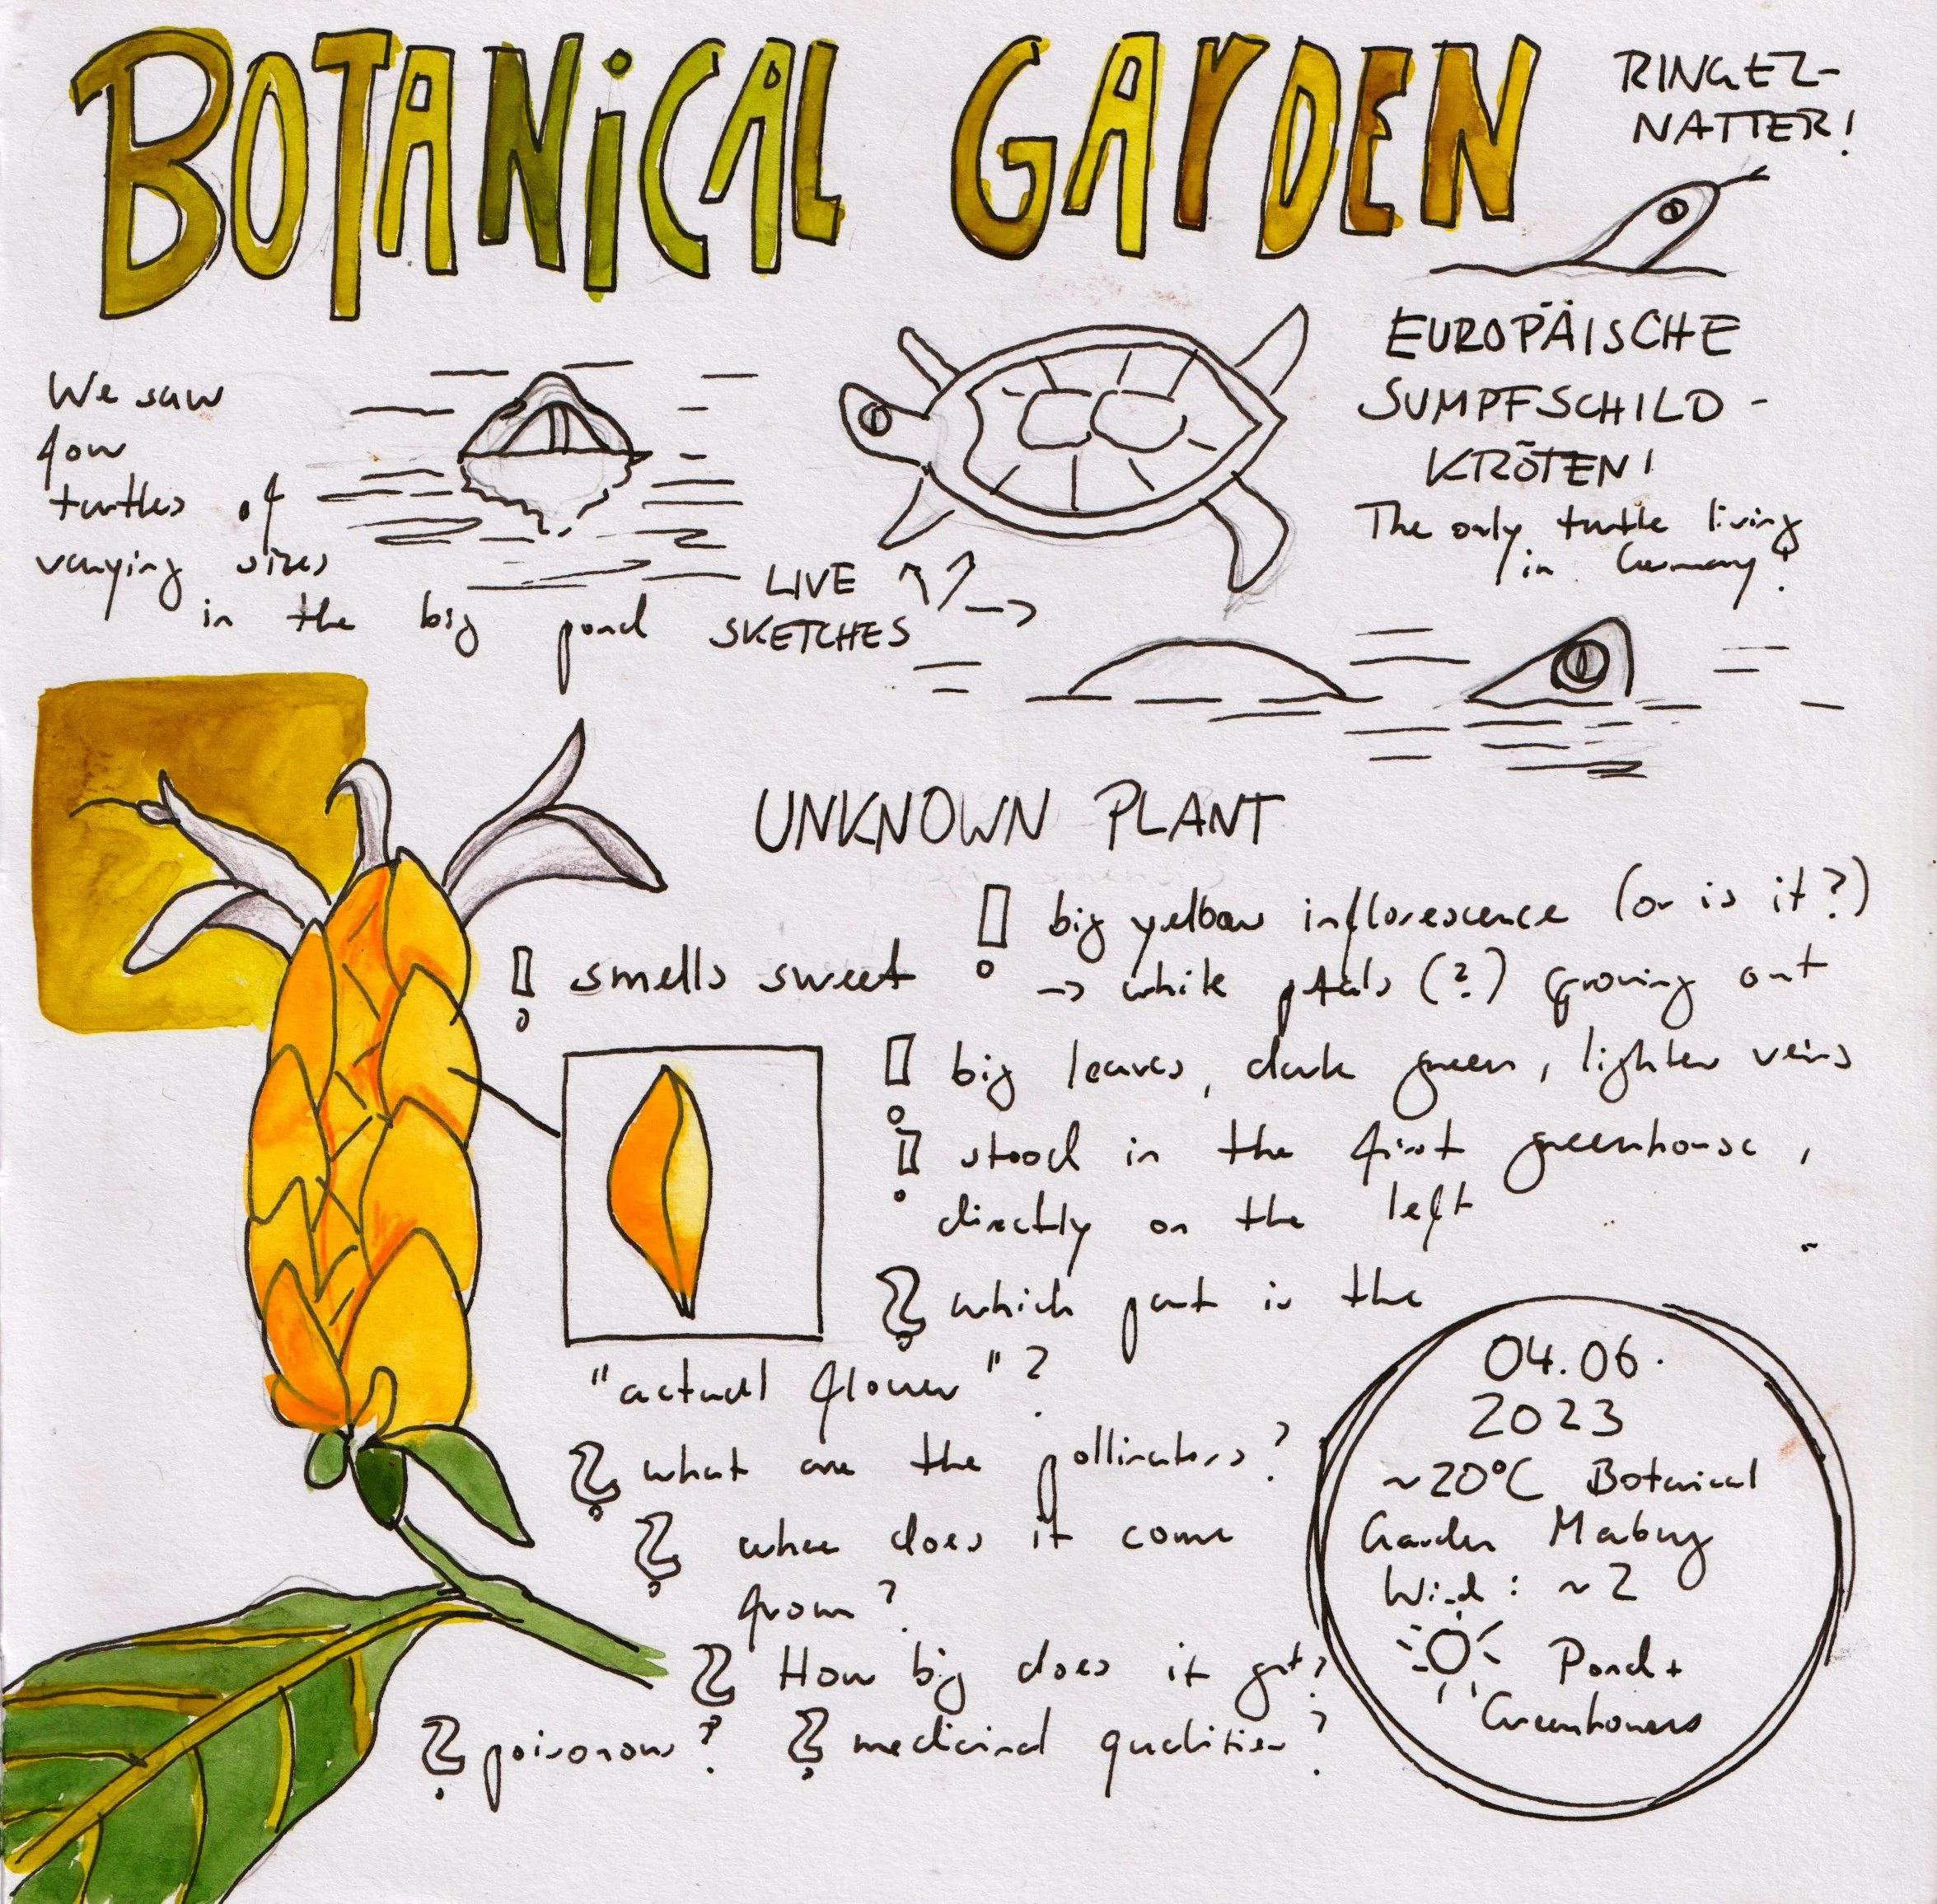 BOTANiCAL GARDEN
RINGEL-
NATTER!
EUROPÄISCHE
SUMPFSCHILD-
KRÖTEN!
The only turtle living
in Germany!
We saw
four
turtles of
varying sizes
in the big pond
LIVE
SKETCHES
UNKNOWN PLANT
! big yellow inflorescence (or is it?)
→ white petals (?) growing out
! smells sweet
! big leaves, dark green, lighter veins
! stood in the first greenhouse,
directly on the left
? which part is the
"actual flower"?
? what are the pollinators?
? where does it come
from?
? How big does it get?
? poisonous? ? medicinal qualities?
04.06.
2023
~20°C Botanical
Garden Marburg
Wind: ~2
Pond +
Greenhouses